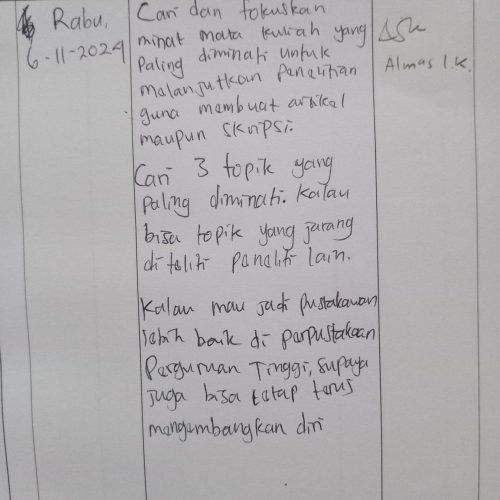 Rabu,
6-11-2024
Cari dan fokuskan
minat mata kuliah yang
paling diminati untuk
melanjutkan penelitian
guna membuat artikel
maupun skripsi.
Cari 3 topik yang
paling diminati. Kalau
bisa topik yang jarang
diteliti peneliti lain.
Kalau mau jadi pustakawan
lebih baik di perpustakaan
Perguruan Tinggi, supaya
juga bisa tetap terus
mengembangkan diri
Almas I.K.